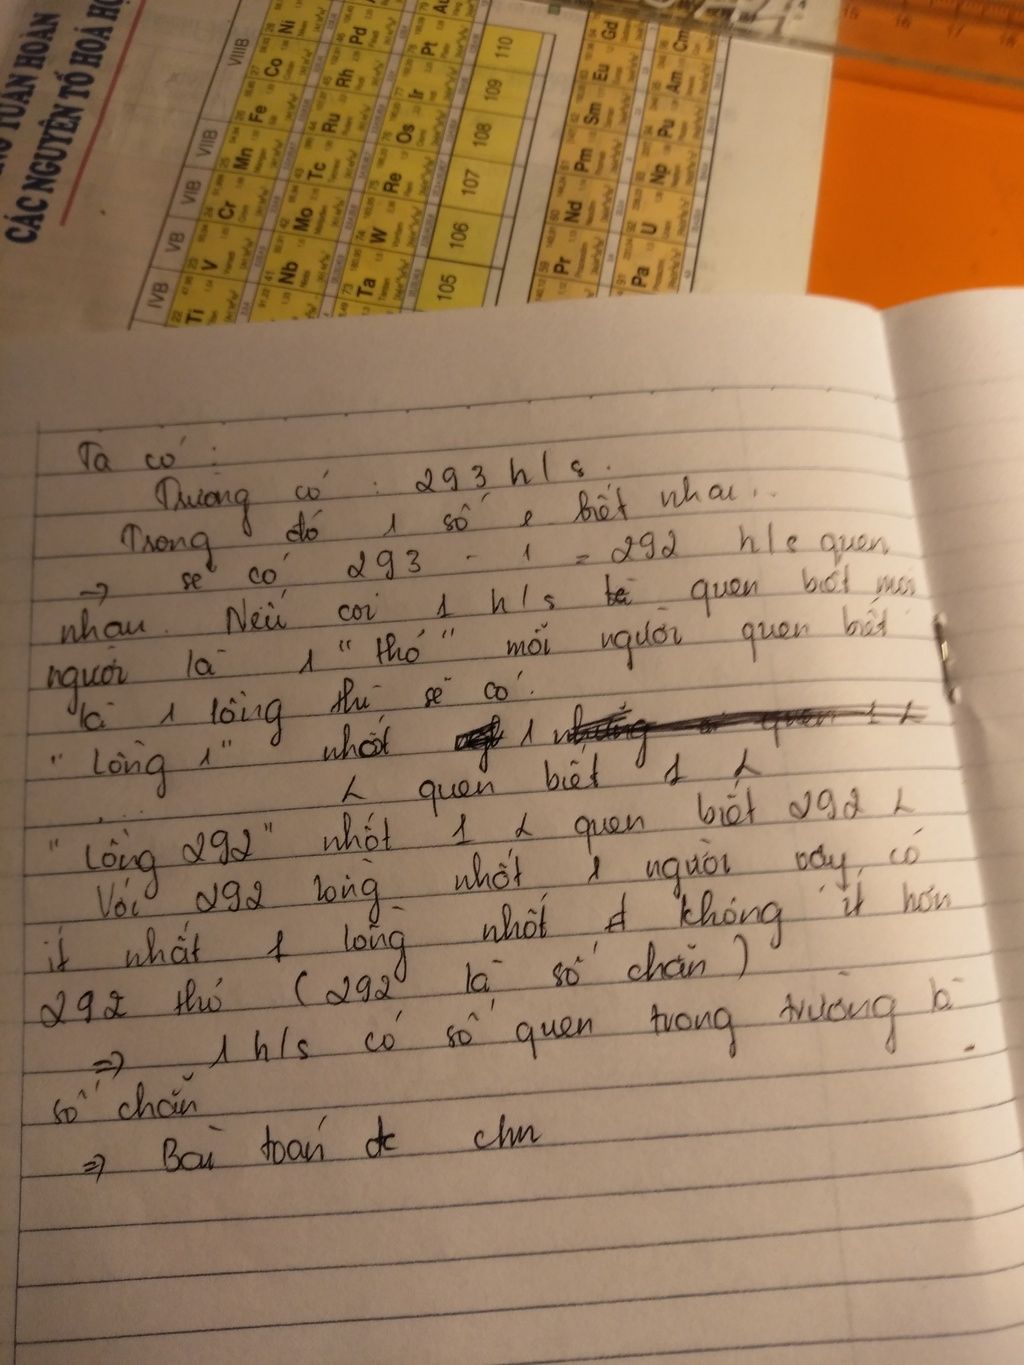 TUẦN HOÀN
CÁC NGUYÊN TỐ HOÁ HỌ
IVB VB VIB VIIB VIIIB
Ti V Cr Mn Fe Co Ni
Nb Mo Tc Ru Rh Pd
Ta W Re Os Ir Pt Au
105 106 107 108 109 110
Pr Nd Pm Sm Eu Gd
Pa U Np Pu Am Cm
15 16 17 18
Ta có :
Trường có : 293 h/s.
Trong đó 1 số e biết nhau..
=> sẽ có 293 - 1 = 292 h/s quen
nhau. Nếu coi 1 h/s quen biết mọi
người là 1 "thỏ" mỗi người quen biết
là 1 lồng thì sẽ có.
"Lồng 1" nhốt 1
L quen biết 1 L
"Lồng 292" nhốt 1 L quen biết 292 L
Với 292 lồng nhốt 1 người vậy có
ít nhất 1 lồng nhốt không ít hơn
292 thỏ (292 là số chẵn)
=> 1 h/s có số quen trong trường là
số chẵn
=> Bài toán đc chm